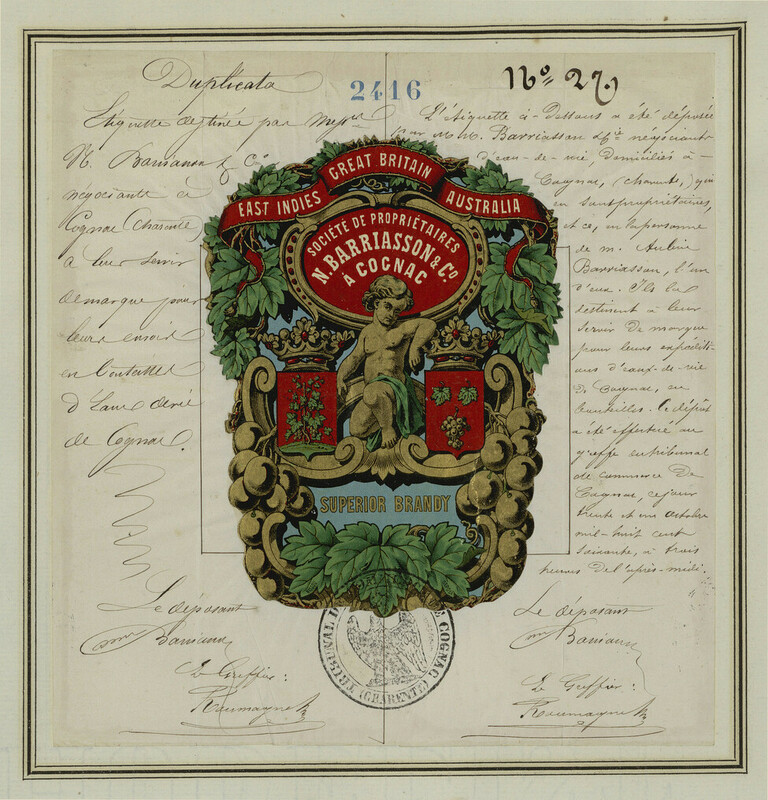 Duplicata
2416
No 27.
Etiquette destinée par Messrs
N. Barriasson & Cie
négociants à
Cognac (Charente)
à leur servir
de marque pour
leurs envois
en bouteilles
d'Eaux de vie
de Cognac.
Le déposant
Barriasson
Le Greffier:
GREAT BRITAIN
EAST INDIES
AUSTRALIA
SOCIÉTÉ DE PROPRIÉTAIRES
N. BARRIASSON & Co.
À COGNAC
SUPERIOR BRANDY
TRIBUNAL DE COGNAC (CHARENTE)
L'étiquette ci-dessous a été déposée
par M.M. Barriasson & Cie négociants
d'eau-de-vie, domiciliés à
Cognac, (charente,) qui
en sont propriétaires,
et ce, en la personne
de m.
Barriasson, l'un
d'eux. Ils la
destinent à leur
servir de marque
pour leurs expéditi-
ons d'eaux-de-vie
de Cognac, en
bouteilles. Ce dépôt
a été effectué au
greffe du tribunal
de commerce de
Cognac, ce jour
trente et un octobre
mil-huit cent
soixante, à trois
heures de l'après-midi.
Le déposant
Barriasson
Le Greffier: